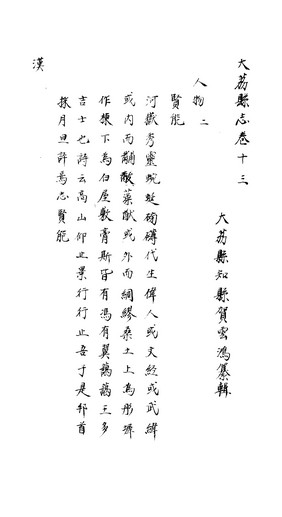 大荔縣志卷十三
大荔縣知縣賀雲鴻纂輯
人物二
賢能
河嶽秀靈蜿蜒磅礴代生偉人或文經或武緯
或內而黼黻葉猷或外而綢繆桑土上為彤墀
作棟下為白屋敷膏斯皆有馮有翼藹藹王多
吉士也詩云高山仰止景行行止吾于是邦首
採月旦許焉志賢能
漢